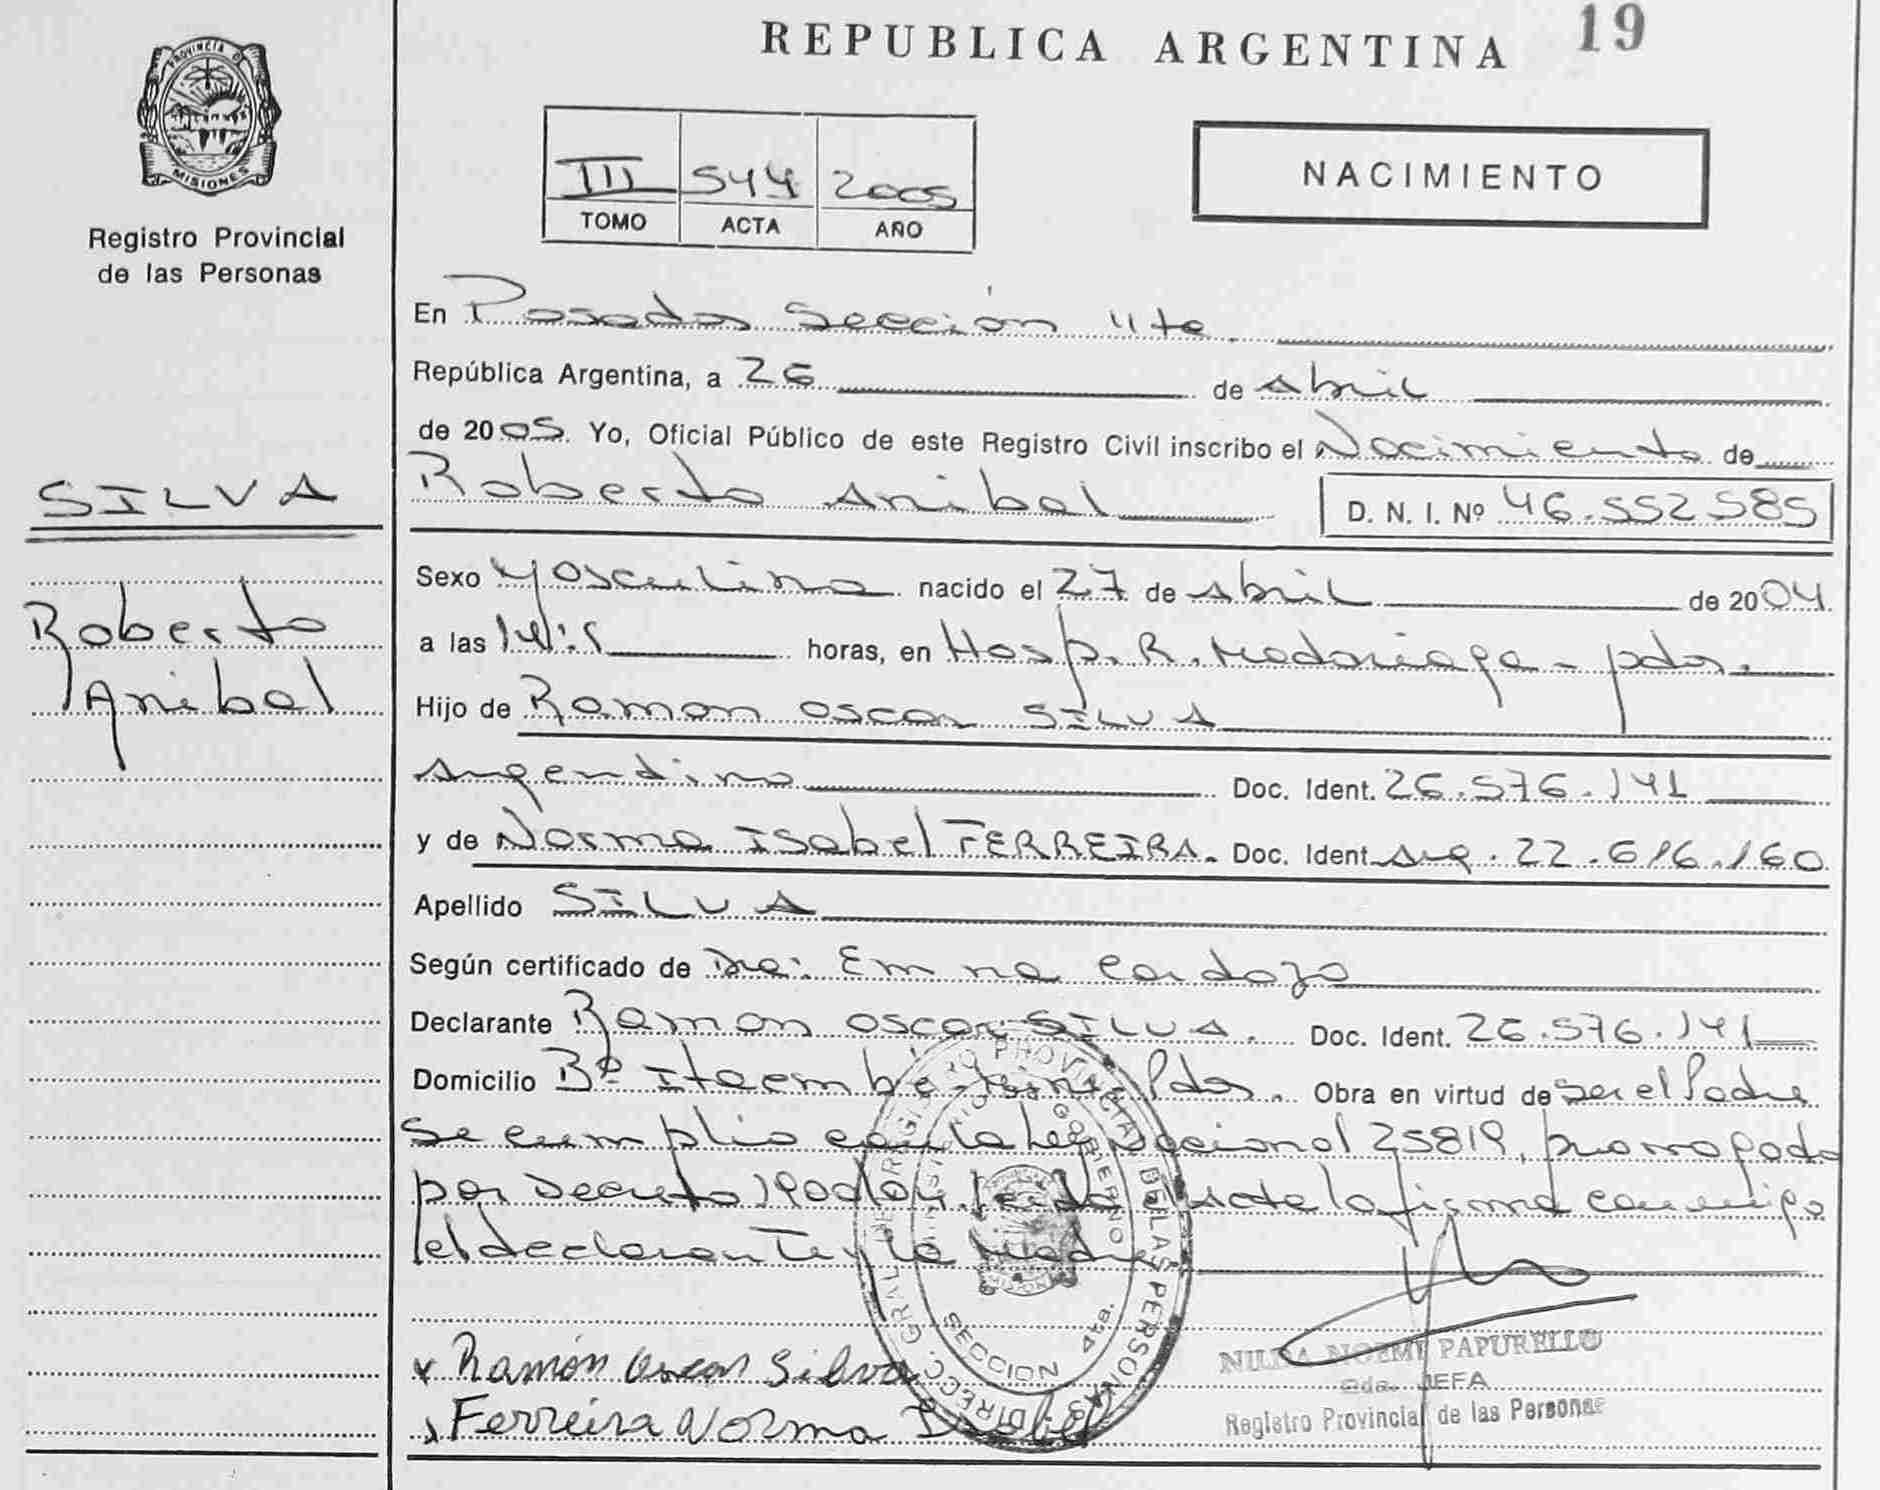 REPUBLICA ARGENTINA 19
PROVINCIA D
MISIONES
Registro Provincial
de las Personas
III 544 2005
TOMO ACTA AÑO
NACIMIENTO
En Posadas Sección 4ta.
República Argentina, a 26 de abril
de 2005. Yo, Oficial Público de este Registro Civil inscribo el Nacimiento de
SILVA
Roberto Anibal
Roberto Anibal D. N. I. Nº 46.552585
Sexo Masculino nacido el 27 de abril de 2004
a las horas, en Hosp. R. Madariaga - pdas.
Hijo de Ramon Oscar SILVA
argentino Doc. Ident. 26.576.141
y de Norma Isabel FERREIRA. Doc. Ident. arg. 22.616.160
Apellido SILVA
Según certificado de Dra: Emna Cardozo
Declarante Ramon Oscar SILVA. Doc. Ident. 26.576.141
Domicilio Bº Itaembé Pdas. Obra en virtud de Ser el Padre
Se cumplio con la Ley Nacional 25819, prorrogada
por Decreto 190 acta la firma conmigo
el declarante y la Madre
x Ramón Oscar Silva
x Ferreira Norma Isabel
DIRECC. GRAL. DE REGISTRO PROVINCIAL DE LAS PERSONAS
MINISTERIO GOBIERNO
SECCION 4ta.
NILDA NOEMI PAPURELLO
2da. JEFA
Registro Provincial de las Personas